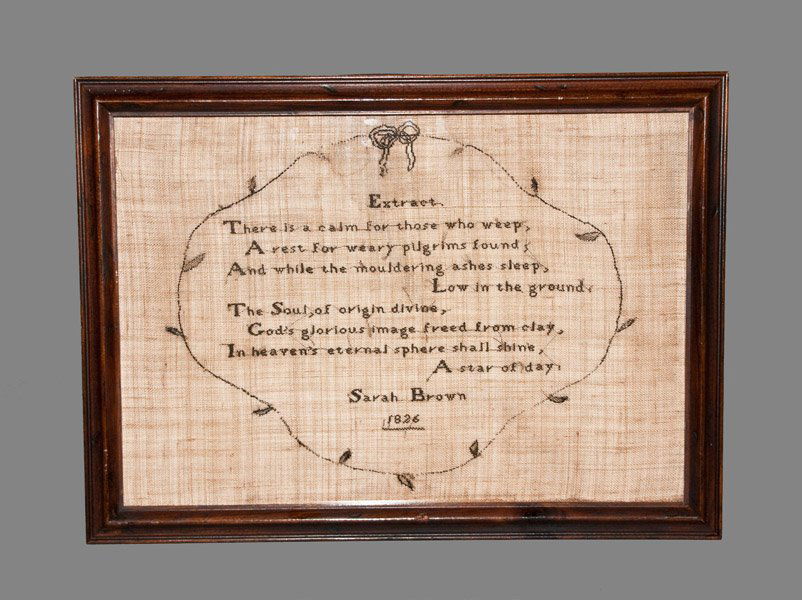 Extract.
There is a calm for those who weep,
A rest for weary pilgrims found;
And while the mouldering ashes sleep,
Low in the ground,
The Soul, of origin divine,
God's glorious image freed from clay,
In heaven's eternal sphere shall shine,
A star of day.
Sarah Brown
1826